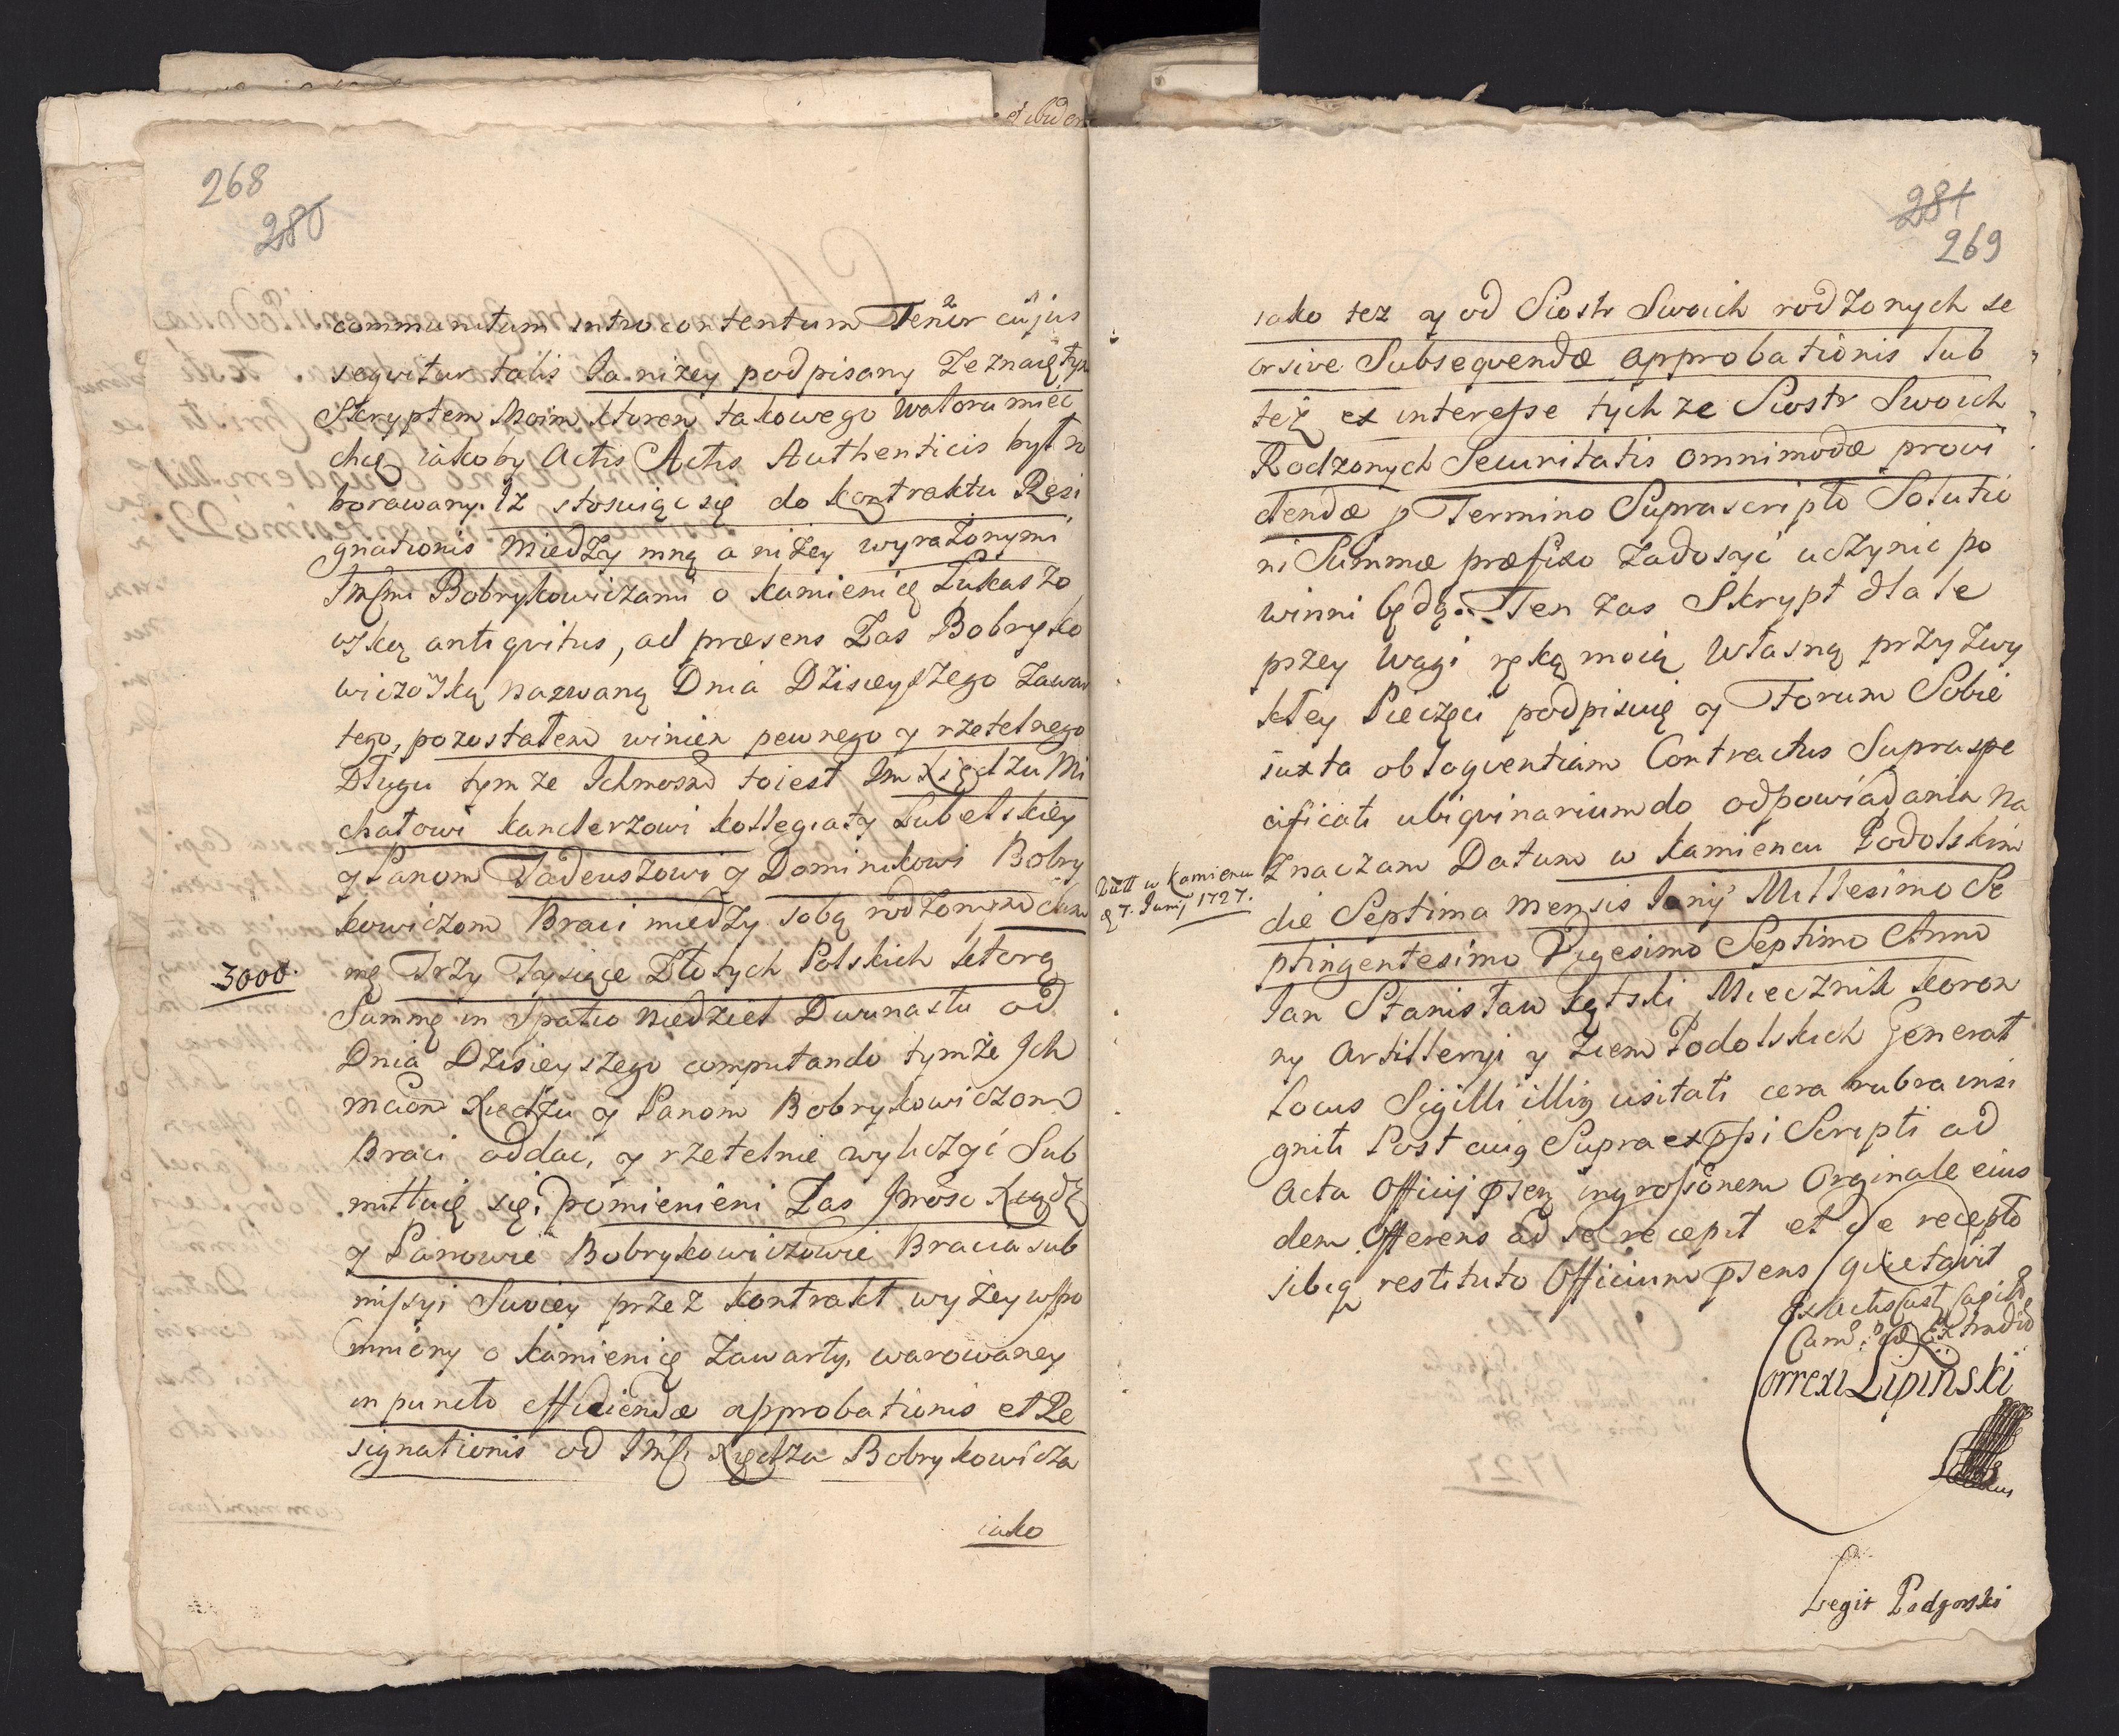 268
280
communitum introcontentum Tenor cujus
seqvitur talis Ja niżey podpisany Zeznaię tym
Skryptem Moim ktoren takowego waloru mieć
chcę iakoby Actis Actis Authenticis był ro
borowany. Iż stosuiąc się do kontraktu Resi
gnationis Miedzy mną a niżey wyrażonymi
Imćmi Bobrykowiczami o kamienicę Łukaszo
wską antiqvitus, ad præsens Zas Bobryko
wiczowską nazwaną Dnia Dzisieyszego zawar
tego, pozostałem winien pewnego y rzetelnego
Długu tym ze Ichmoscm toiest Im Xiędzu Mi
chałowi kanclerzowi kollegiaty Lubelskiey
y Panom Tadeuszowi y Dominikowi Bobry
kowiczom Braci miedzy sobą rodzonym Sum
mę Trzy Tysiące Złotych Polskich ktorą
3000.
Summę in Spatio Niedziel Dwunastu od
Dnia Dzisieyszego computando tymże Ich
mciom Xiedzu y Panom Bobrykowiczom
Braci oddać, y rzetelnie wyliczyć Sub
mittuię się, pomienieni Zas Jmość Xiądz
y Panowie Bobrykowiczowie Bracia sub
missyi Swoiey przez kontrakt wyżey wspo
mniony o kamienicę Zawarty, warowaney
in puncto efficiendæ approbationis et Re
signationis od Imści Xiędza Bobrykowicza
iako
284
269
iako tez y od Siostr Swoich rodzonych se
orsive Subseqvendæ approbationis Tub
też ex interesse tych ze Siostr Swoich
Rodzonych Securitatis omnimodæ provi
dendæ p Termino Suprascripto Solutio
ni Summæ præfixo Zadosyć uczynic po
winni będą. Ten zas Skrypt dla le
przey wagi ręką moią własną przy zwy
kłey Pieczęci podpisuię y Forum Sobie
iuxta obloqventiam Contractus Supraspe
cificati ubiqvinarium do odpowiadania Na
Znaczam Datum w Kamiencu Podolskim
w Kamiencu
7. Junij 1727.
die Septima mensis Junij Millesimo Se
ptingentesimo Vigesimo Septimo Anno
Jan Stanisław Kątski Miecznik koron
ny Artilleryi y Ziem Podolskich Generał
Locus Sigilli illiq usitati cera rubra insi
gniti Post cuiq Supra exppsi Scripti ad
Acta Officij pseń ingrossōnem Orginale eius
dem Offerens ad se recepit et de recepto
sibiq restituto Officium psens qvietavit
Ex Actis Cast Capit
Cam Extradit
Correxi Lipinski
Legit Podgorski